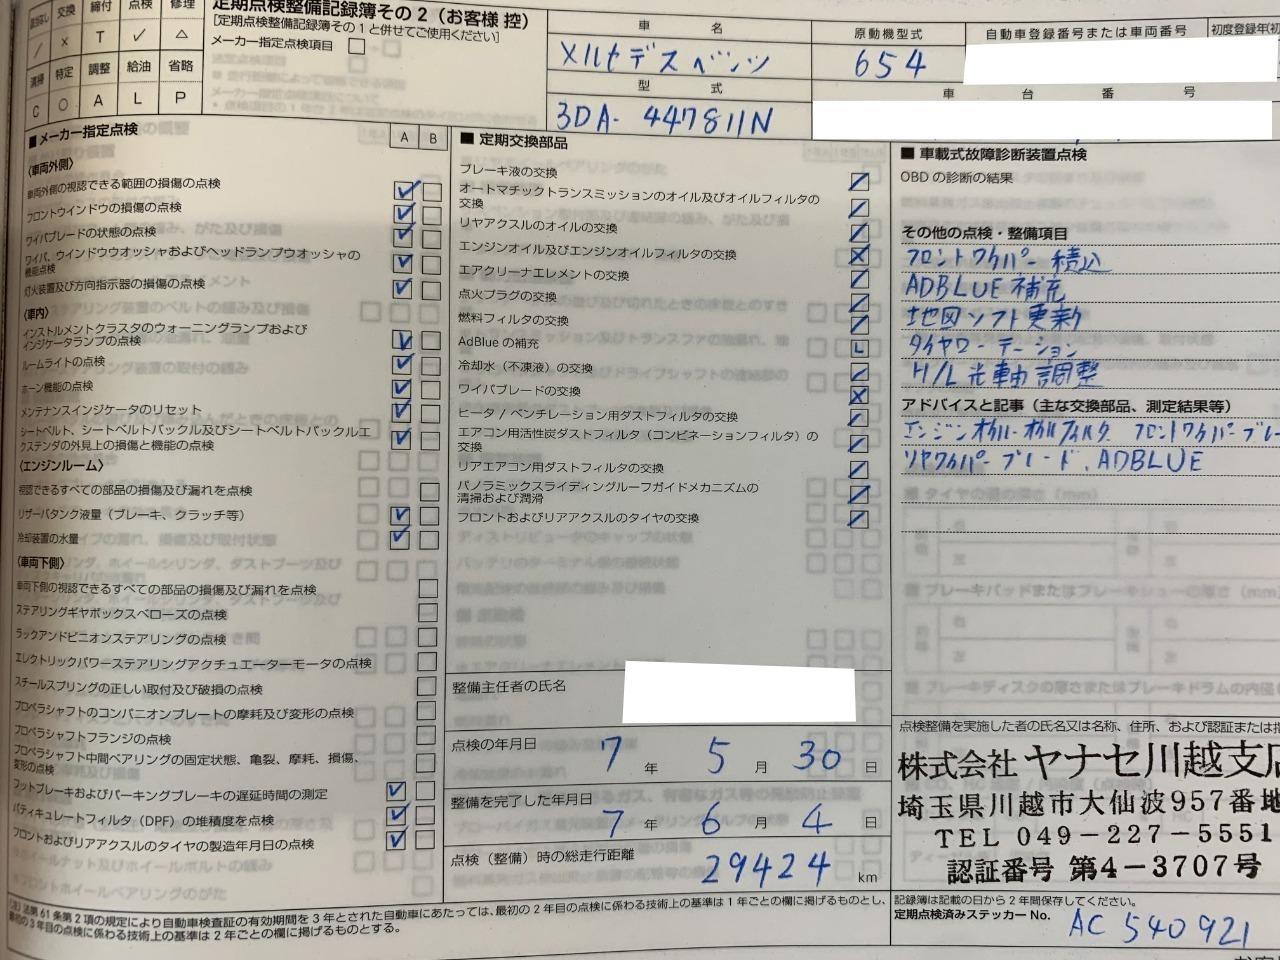 交換 締付 点検 修理
/ × T ✓ △
清掃 特定 調整 給油 省略
C ○ A L P
定期点検整備記録簿その2（お客様 控）
[定期点検整備記録簿その1と併せてご使用ください]
メーカー指定点検項目
車 名
メルセデス ベンツ
型 式
3DA- 447811N
原動機型式
654
自動車登録番号または車両番号
初度登録年(初
車 台 番 号
■メーカー指定点検 A B
〈車両外側〉
車両外側の視認できる範囲の損傷の点検 ✓
フロントウインドウの損傷の点検 ✓
ワイパブレードの状態の点検 ✓
ワイパ、ウインドウウオッシャおよびヘッドランプウオッシャの
機能点検 ✓
灯火装置及び方向指示器の損傷の点検 ✓
〈車内〉
インストルメントクラスタのウォーニングランプおよび
インジケータランプの点検 ✓
ルームライトの点検 ✓
ホーン機能の点検 ✓
メンテナンスインジケータのリセット ✓
シートベルト、シートベルトバックル及びシートベルトバックルエ
クステンダの外見上の損傷と機能の点検 ✓
〈エンジンルーム〉
視認できるすべての部品の損傷及び漏れを点検
リザーバタンク液量（ブレーキ、クラッチ等） ✓
冷却装置の水量 ✓
〈車両下側〉
車両下側の視認できるすべての部品の損傷及び漏れを点検
ステアリングギヤボックスベローズの点検
ラックアンドピニオンステアリングの点検
エレクトリックパワーステアリングアクチュエーターモータの点検
スチールスプリングの正しい取付及び破損の点検
プロペラシャフトのコンパニオンプレートの摩耗及び変形の点検
プロペラシャフトフランジの点検
プロペラシャフト中間ベアリングの固定状態、亀裂、摩耗、損傷、
変形の点検
フットブレーキおよびパーキングブレーキの遅延時間の測定 ✓
パティキュレートフィルタ（DPF）の堆積度を点検 ✓
フロントおよびリアアクスルのタイヤの製造年月日の点検 ✓
■ 定期交換部品
ブレーキ液の交換 /
オートマチックトランスミッションのオイル及びオイルフィルタの
交換 /
リヤアクスルのオイルの交換 /
エンジンオイル及びエンジンオイルフィルタの交換 ×
エアクリーナエレメントの交換 /
点火プラグの交換 /
燃料フィルタの交換 /
AdBlueの補充 L
冷却水（不凍液）の交換 /
ワイパブレードの交換 ×
ヒータ / ベンチレーション用ダストフィルタの交換 /
エアコン用活性炭ダストフィルタ（コンビネーションフィルタ）の
交換 /
リアエアコン用ダストフィルタの交換 /
パノラミックスライディングルーフガイドメカニズムの
清掃および潤滑 /
フロントおよびリアアクスルのタイヤの交換 /
整備主任者の氏名
点検の年月日 7 年 5 月 30 日
整備を完了した年月日
7 年 6 月 4 日
点検（整備）時の総走行距離
29424 km
■ 車載式故障診断装置点検
OBDの診断の結果
その他の点検・整備項目
フロントワイパー 積込
ADBLUE 補充
地図ソフト更新
タイヤローテーション
H/L 光軸調整
アドバイスと記事（主な交換部品、測定結果等）
エンジンオイル・オイルフィルタ フロントワイパーブレー
リヤワイパーブレード、ADBLUE
点検整備を実施した者の氏名又は名称、住所、および認証または指
株式会社 ヤナセ川越支店
埼玉県川越市大仙波957番地
TEL 049－227－5551
認証番号 第4－3707号
記録簿は記載の日から2年間保存してください。
定期点検済みステッカー No. AC 540921
(注) 法第61条第2項の規定により自動車検査証の有効期間を3年とされた自動車にあたっては、最初の2年目の点検に係わる技術上の基準は1年ごとの欄に掲げるものとし、
最初の3年目の点検に係わる技術上の基準は2年ごとの欄に掲げるものとする。